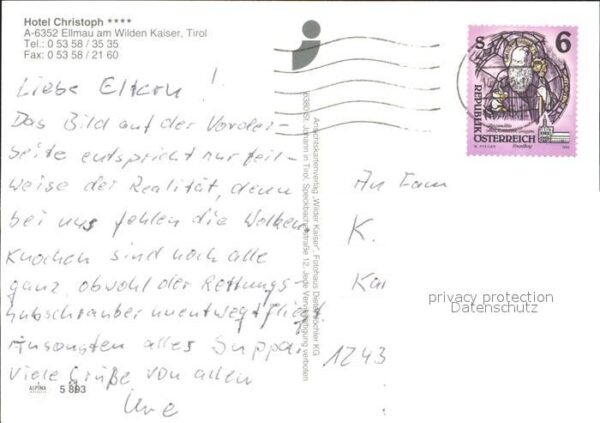 Hotel Christoph ****
A-6352 Ellmau am Wilden Kaiser, Tirol
Tel.: 0 53 58 / 35 35
Fax: 0 53 58 / 21 60
Liebe Eltern!
Das Bild auf der Vorder-
seite entspricht nur teil-
weise der Realität, denn
bei uns fehlen die Wolken.
Knochen sind noch alle
ganz, obwohl der Rettungs-
hubschrauber unentwegt fliegt.
Ansonsten alles Suppa.
Viele Grüße von allen
Uwe
ALPINA
5 893
Ansichtskartenverlag „Wilder Kaiser“, Fotohaus Dieter
6380 St. Johann in Tirol, Speckbacherstraße 12, Jede Vervielfältigung verboten
S 6
REPUBLIK
ÖSTERREICH
An Fam
K.
Kai
1243
privacy protection
Datenschutz